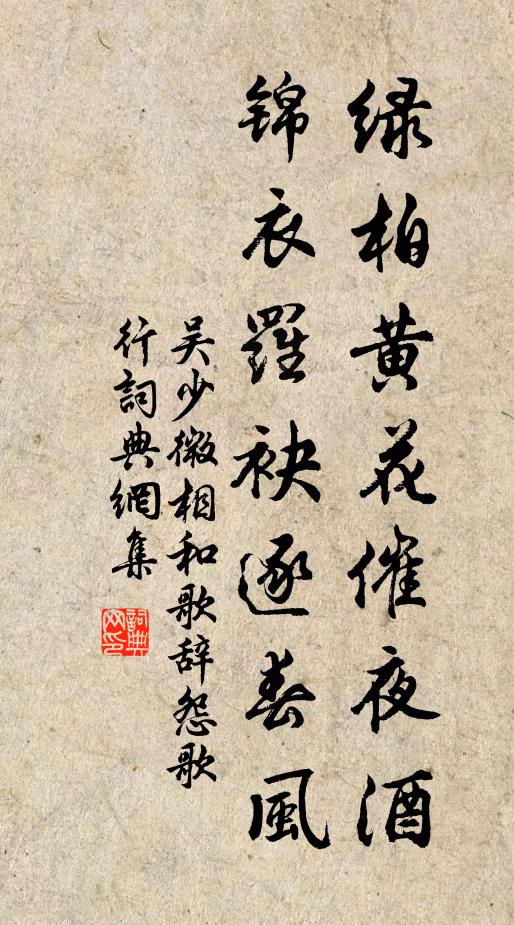 绿柏黄花催夜酒
锦衣羅袂逐春風
吴少微相和歌辞怨歌
行詞典網集
詞典
网印